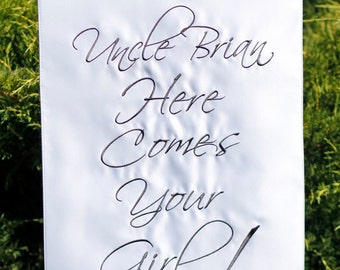 Uncle Brian
Here
Comes
Your
Girl!